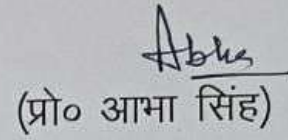 Abha
(प्रो० आभा सिंह)